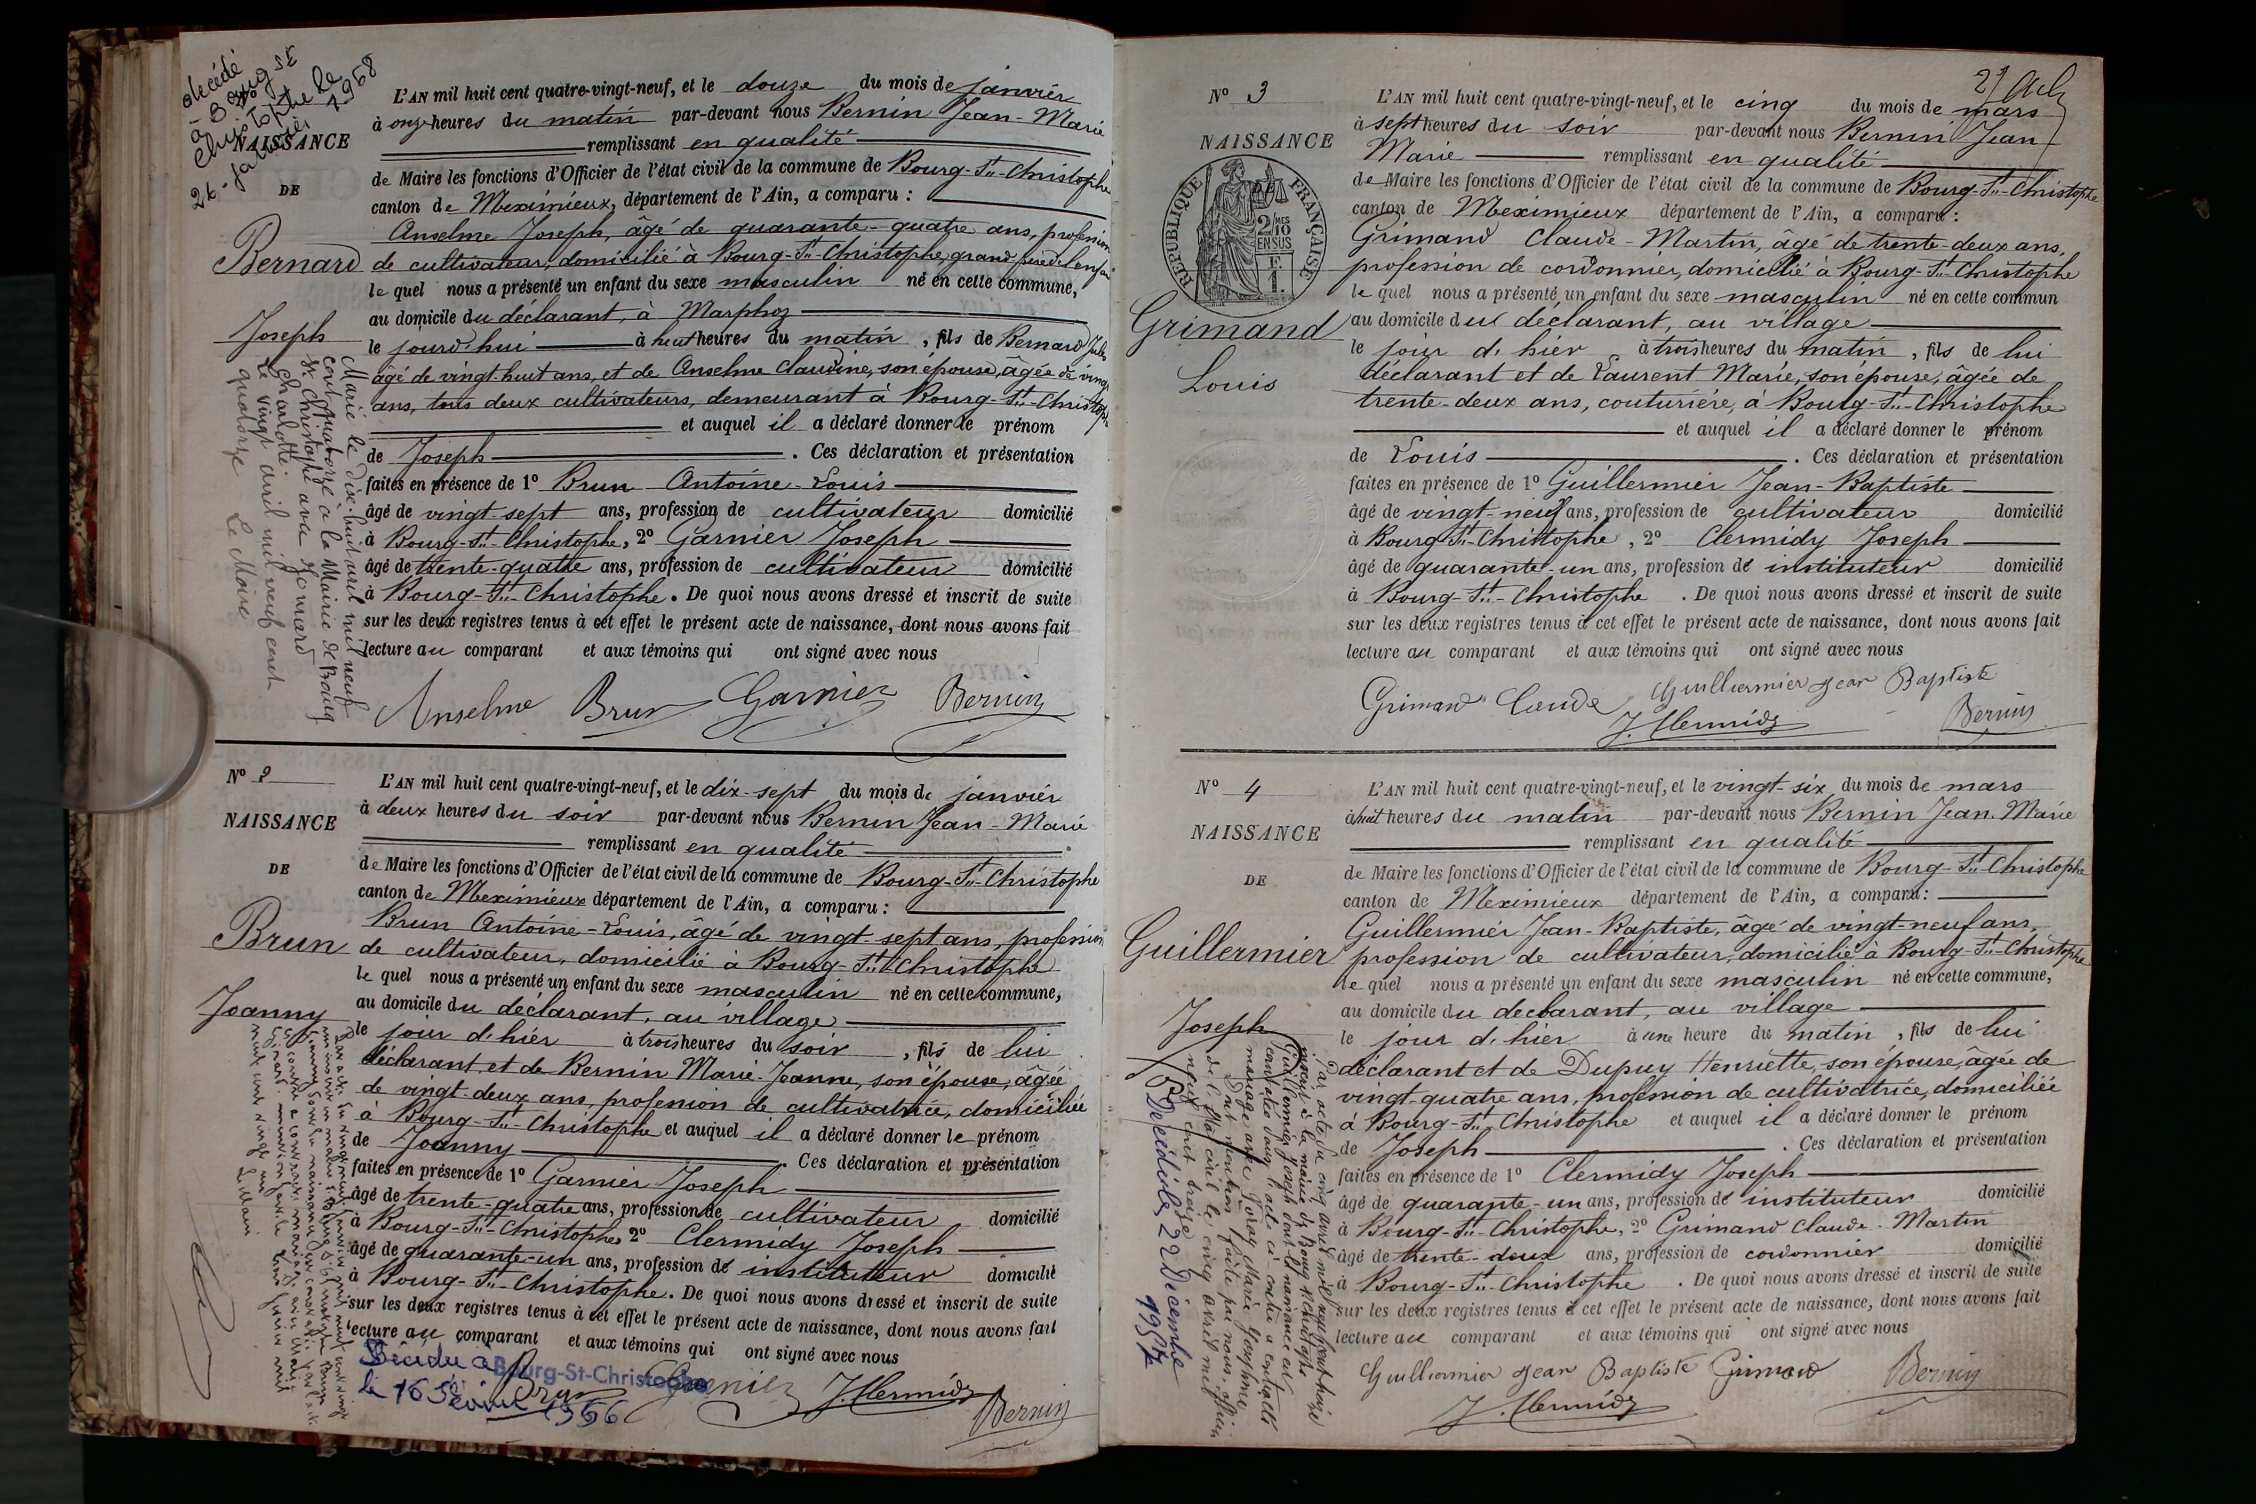 décédé
à Bourg St
Christophe le
26 janvier 1968
NAISSANCE
DE
Bernard
Joseph
L'AN mil huit cent quatre-vingt-neuf, et le douze du mois de janvier
à onze heures du matin par-devant nous Bernin Jean-Marie
remplissant en qualité
de Maire les fonctions d'Officier de l'état civil de la commune de Bourg-St-Christophe
canton de Meximieux, département de l'Ain, a comparu :
Anselme Joseph, âgé de quarante-quatre ans, profession
de cultivateur, domicilié à Bourg-St-Christophe, grand père de l'enfant
lequel nous a présenté un enfant du sexe masculin né en cette commune,
au domicile du déclarant, à Marphoz
le jourd'hui à huit heures du matin, fils de Bernard Jules
âgé de vingt-huit ans, et de Anselme Claudine, son épouse, âgée de vingt
ans, tous deux cultivateurs, demeurant à Bourg-St-Christophe
et auquel il a déclaré donner le prénom
de Joseph. Ces déclaration et présentation
faites en présence de 1° Brun Antoine-Louis
âgé de vingt-sept ans, profession de cultivateur domicilié
à Bourg-St-Christophe, 2° Garnier Joseph
âgé de trente-quatre ans, profession de cultivateur domicilié
à Bourg-St-Christophe. De quoi nous avons dressé et inscrit de suite
sur les deux registres tenus à cet effet le présent acte de naissance, dont nous avons fait
lecture au comparant et aux témoins qui ont signé avec nous
Anselme Brun Garnier Bernin
Marié le dix-huit avril mil neuf
cent quatorze à la Mairie de Bourg
St Christophe avec
Charlotte
Le vingt avril mil neuf cent
quatorze Le Maire
N° 2
NAISSANCE
DE
Brun
Joanny
L'AN mil huit cent quatre-vingt-neuf, et le dix-sept du mois de janvier
à deux heures du soir par-devant nous Bernin Jean-Marie
remplissant en qualité
de Maire les fonctions d'Officier de l'état civil de la commune de Bourg-St-Christophe
canton de Meximieux département de l'Ain, a comparu :
Brun Antoine-Louis, âgé de vingt-sept ans, profession
de cultivateur, domicilié à Bourg-St-Christophe
lequel nous a présenté un enfant du sexe masculin né en cette commune,
au domicile du déclarant, au village
le jour d'hier à trois heures du soir, fils de lui
déclarant, et de Bernin Marie-Jeanne, son épouse, âgée
de vingt-deux ans, profession de cultivatrice, domiciliée
à Bourg-St-Christophe et auquel il a déclaré donner le prénom
de Joanny. Ces déclaration et présentation
faites en présence de 1° Garnier Joseph
âgé de trente-quatre ans, profession de cultivateur domicilié
à Bourg-St-Christophe, 2° Clermidy Joseph
âgé de quarante-un ans, profession de instituteur domicilié
à Bourg-St-Christophe. De quoi nous avons dressé et inscrit de suite
sur les deux registres tenus à cet effet le présent acte de naissance, dont nous avons fait
lecture au comparant et aux témoins qui ont signé avec nous
Décédé à Bourg-St-Christophe
le 16 1966
Brun Garnier J. Clermidy Bernin
N° 3
NAISSANCE
RÉPUBLIQUE FRANÇAISE
2/10 MES
EN SUS
F.
1.
Grimand
Louis
L'AN mil huit cent quatre-vingt-neuf, et le cinq du mois de mars
à sept heures du soir par-devant nous Bernin Jean-
Marie remplissant en qualité
de Maire les fonctions d'Officier de l'état civil de la commune de Bourg-St-Christophe
canton de Meximieux département de l'Ain, a comparu :
Grimand Claude-Martin, âgé de trente-deux ans,
profession de cordonnier, domicilié à Bourg-St-Christophe
lequel nous a présenté un enfant du sexe masculin né en cette commun
au domicile du déclarant, au village
le jour d'hier à trois heures du matin, fils de lui
déclarant et de Laurent Marie, son épouse, âgée de
trente-deux ans, couturière, à Bourg-St-Christophe
et auquel il a déclaré donner le prénom
de Louis. Ces déclaration et présentation
faites en présence de 1° Guillermier Jean-Baptiste
âgé de vingt-neuf ans, profession de cultivateur domicilié
à Bourg-St-Christophe, 2° Clermidy Joseph
âgé de quarante-un ans, profession de instituteur domicilié
à Bourg-St-Christophe. De quoi nous avons dressé et inscrit de suite
sur les deux registres tenus à cet effet le présent acte de naissance, dont nous avons fait
lecture au comparant et aux témoins qui ont signé avec nous
Grimand Claude Guillermier Jean Baptiste
J. Clermidy Bernin
N° 4
NAISSANCE
DE
Guillermier
Joseph
L'AN mil huit cent quatre-vingt-neuf, et le vingt-six du mois de mars
à huit heures du matin par-devant nous Bernin Jean-Marie
remplissant en qualité
de Maire les fonctions d'Officier de l'état civil de la commune de Bourg-St-Christophe
canton de Meximieux département de l'Ain, a comparu :
Guillermier Jean-Baptiste, âgé de vingt-neuf ans,
profession de cultivateur, domicilié à Bourg-St-Christophe
lequel nous a présenté un enfant du sexe masculin né en cette commune,
au domicile du déclarant, au village
le jour d'hier à une heure du matin, fils de lui
déclarant et de Dupuy Henriette, son épouse, âgée de
vingt-quatre ans, profession de cultivatrice, domiciliée
à Bourg-St-Christophe et auquel il a déclaré donner le prénom
de Joseph. Ces déclaration et présentation
faites en présence de 1° Clermidy Joseph
âgé de quarante-un ans, profession de instituteur domicilié
à Bourg-St-Christophe, 2° Grimand Claude-Martin
âgé de trente-deux ans, profession de cordonnier domicilié
à Bourg-St-Christophe. De quoi nous avons dressé et inscrit de suite
sur les deux registres tenus à cet effet le présent acte de naissance, dont nous avons fait
lecture au comparant et aux témoins qui ont signé avec nous
Guillermier Jean Baptiste Grimand Bernin
J. Clermidy
Par acte du cinq avril mil neuf cent treize
inscrit à la mairie de Bourg St Christophe
Guillermier Joseph dont la naissance est
constatée dans l'acte ci-contre a contracté
mariage avec Marie Josephine
Dont mention faite par nous, officier
de l'état civil le cinq avril mil
neuf cent treize
Décédé le 22 Décembre
1957